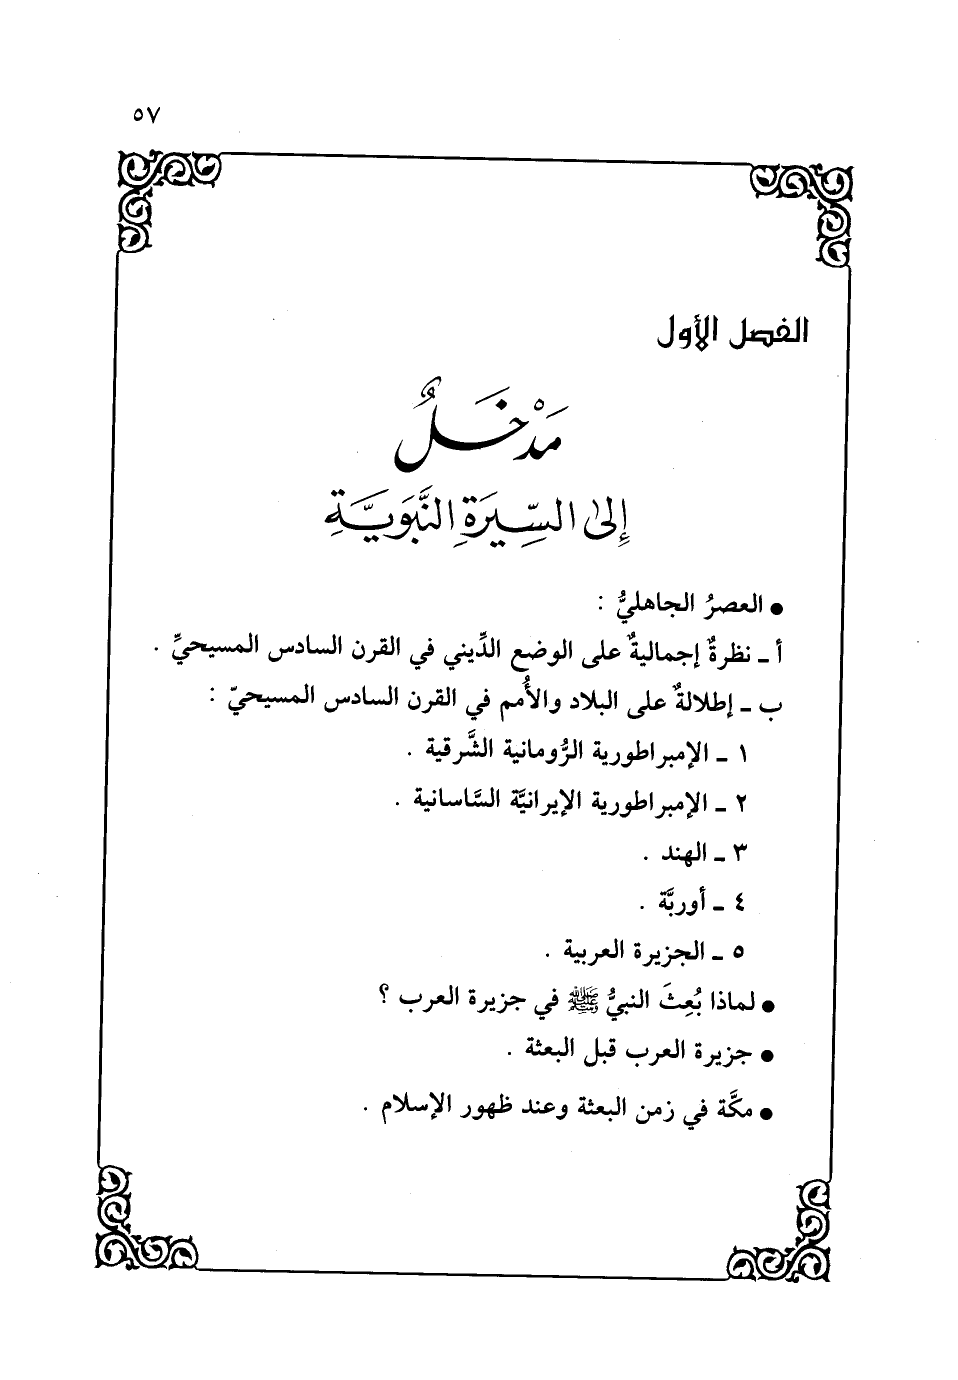 ٥٧
الفصل الأول
مَدْخَلٌ
إِلىٰ السِّيرَةِ النَّبَوِيَّةِ
● العصرُ الجاهليُّ :
أ ـ نظرةٌ إجماليةٌ على الوضع الدِّيني في القرن السادس المسيحيِّ .
ب ـ إطلالةٌ على البلاد والأُمم في القرن السادس المسيحيّ :
١ ـ الإمبراطورية الرُّومانية الشَّرقية .
٢ ـ الإمبراطورية الإيرانيَّة السَّاسانية .
٣ ـ الهند .
٤ ـ أوربَّة .
٥ ـ الجزيرة العربية .
● لماذا بُعِثَ النبيُّ ﷺ في جزيرة العرب ؟
● جزيرة العرب قبل البعثة .
● مكَّة في زمن البعثة وعند ظهور الإسلام .